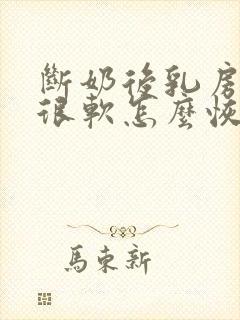 斷奶後乳房
很軟怎麼恢
馬東新